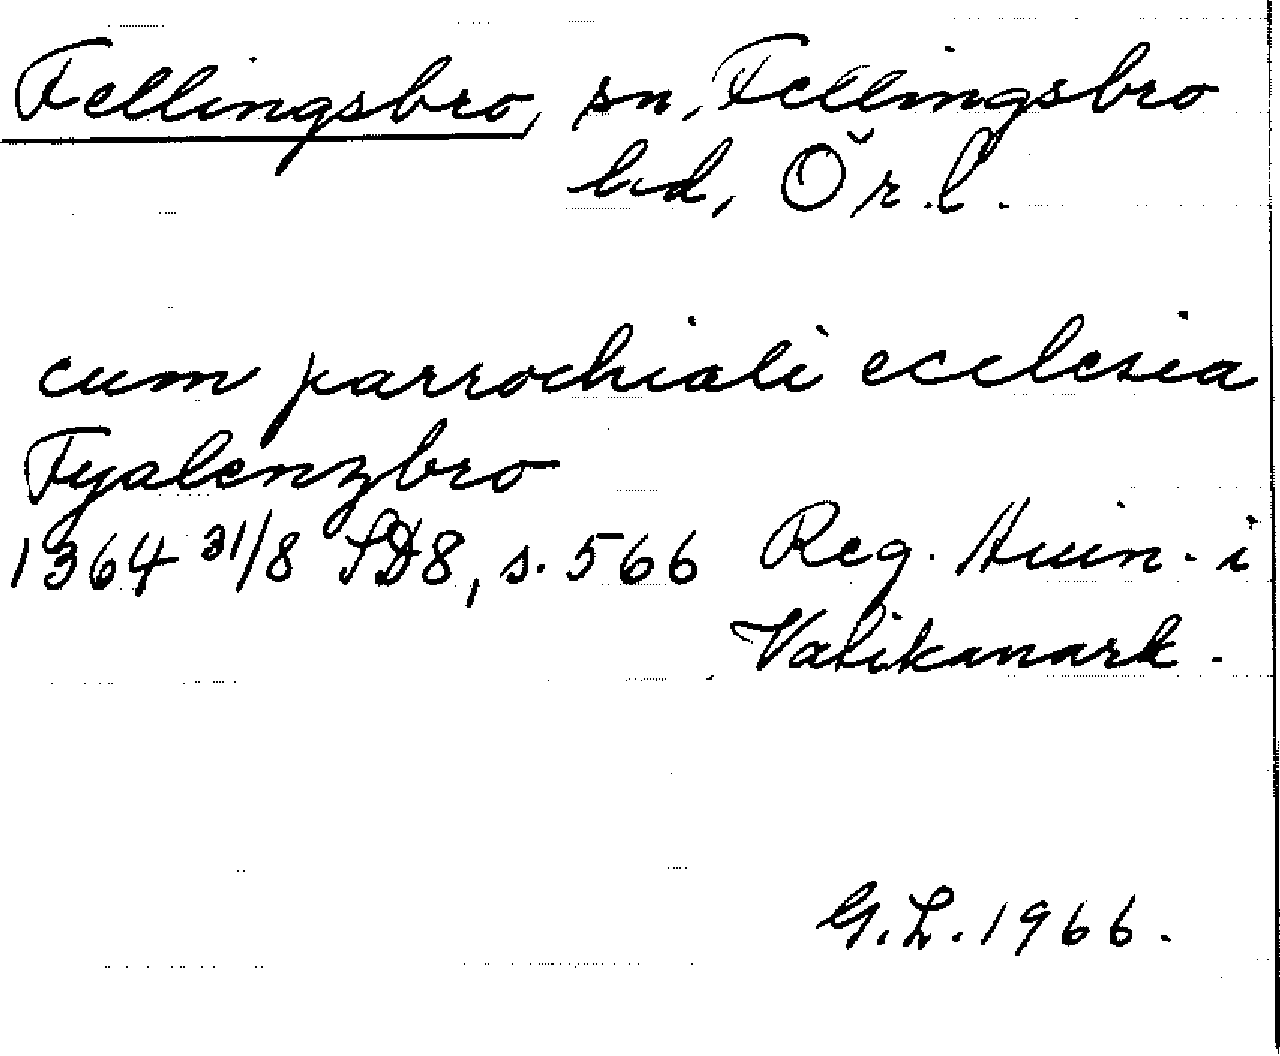 Fellingsbro, sn, Fellingsbro
hd, Ör. l.
cum parrochiali ecclesia
Fyalenzbro
1364 31/8 SD8, s. 566 Reg. Avin. i
Vatikanark.
G. L. 1966.